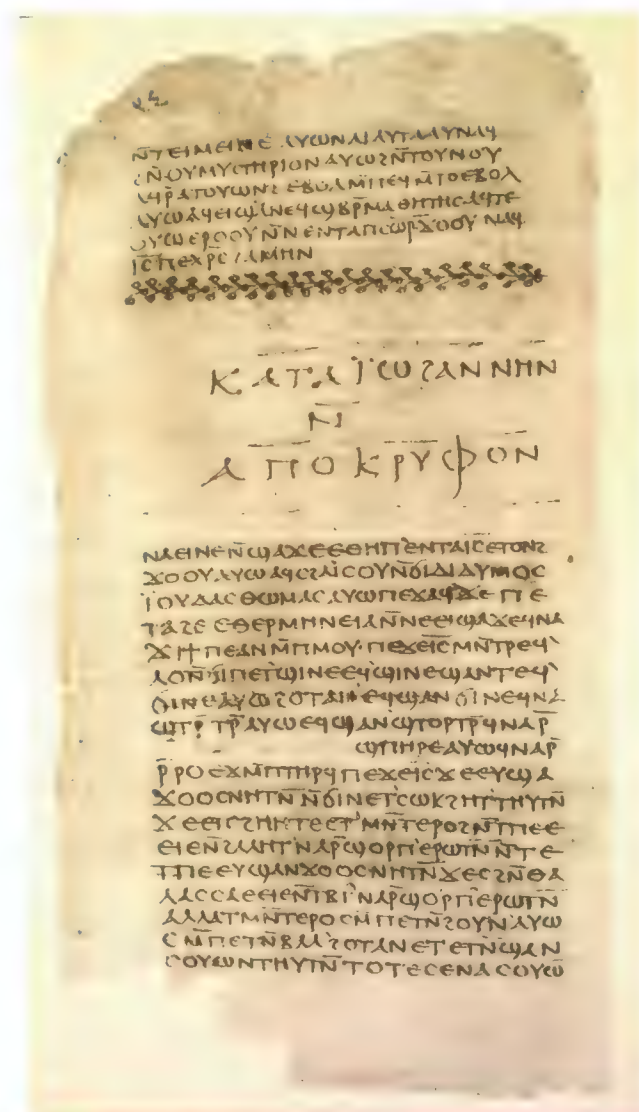 ⲛ̄ⲧⲉⲓⲙⲉⲓⲛⲉ ⲁⲩⲱ ⲛⲁⲓ ⲁⲩⲧⲁⲁⲩ ⲛⲁϥ
ϩⲛ̄ⲟⲩⲙⲩⲥⲧⲏⲣⲓⲟⲛ ⲁⲩⲱ ϩⲛ̄ⲧⲟⲩⲛⲟⲩ
ⲁϥⲣ̄ⲁⲧⲟⲩⲱⲛϩ ⲉⲃⲟⲗ ⲙ̄ⲡⲉϥⲙ̄ⲧⲟ ⲉⲃⲟⲗ
ⲁⲩⲱ ⲁϥⲉⲓ ϣⲁ ⲛⲉϥϣⲃⲣ̄ⲙⲁⲑⲏⲧⲏⲥ ⲁϥⲧⲉ
ⲟⲩⲱ ⲉⲣⲟⲟⲩ ⲛ̄ⲛⲉⲛⲧⲁⲡⲥⲱⲣ̄ ϫⲟⲟⲩ ⲛⲁϥ
ⲓⲥ̄ ⲡⲉⲭⲣⲥ̄ ϩⲁⲙⲏⲛ
ⲕⲁⲧⲁ ⲓ̈ⲱϩⲁⲛⲛⲏⲛ
ⲛ̄ⲓ
ⲁⲡⲟⲕⲣⲩⲫⲟⲛ
ⲛⲁⲉⲓ ⲛⲉ ⲛ̄ϣⲁϫⲉ ⲉⲑⲏⲡ ⲉⲛⲧⲁⲓ̅ⲥ̅ ⲉⲧⲟⲛϩ
ϫⲟⲟⲩ ⲁⲩⲱ ⲁϥⲥϩⲁⲓⲥⲟⲩ ⲛ̄ϭⲓ ⲇⲓⲇⲩⲙⲟⲥ
ⲓ̈ⲟⲩⲇⲁⲥ ⲑⲱⲙⲁⲥ ⲁⲩⲱ ⲡⲉϫⲁϥ ϫⲉ ⲡⲉ
ⲧⲁϩⲉ ⲉⲑⲉⲣⲙⲏⲛⲉⲓⲁ ⲛ̄ⲛⲉⲉⲓϣⲁϫⲉ ϥⲛⲁ
ϫⲓ ϯⲡⲉ ⲁⲛ ⲙ̄ⲡⲙⲟⲩ ⲡⲉϫⲉ ⲓ̅ⲥ̅ ⲙⲛ̄ⲧⲣⲉϥ
ⲗⲟ ⲛ̄ϭⲓ ⲡⲉⲧϣⲓⲛⲉ ⲉϥϣⲓⲛⲉ ϣⲁⲛⲧⲉϥ
ϭⲓⲛⲉ ⲁⲩⲱ ϩⲟⲧⲁⲛ ⲉϥϣⲁⲛϭⲓⲛⲉ ϥⲛⲁ
ϣⲧⲣ̄ⲧⲣ̄ ⲁⲩⲱ ⲉϥϣⲁⲛϣⲧⲟⲣⲧⲣ̄ ϥⲛⲁⲣ̄
ϣⲡⲏⲣⲉ ⲁⲩⲱ ϥⲛⲁⲣ̄
ⲣ̄ⲣⲟ ⲉϫⲙ̄ ⲡⲧⲏⲣϥ ⲡⲉϫⲉ ⲓ̅ⲥ̅ ϫⲉ ⲉⲩϣⲁ
ϫⲟⲟⲥ ⲛⲏⲧⲛ̄ ⲛ̄ϭⲓ ⲛⲉⲧⲥⲱⲕ ϩⲏⲧ ⲧⲏⲩⲧⲛ̄
ϫⲉ ⲉⲓⲥϩⲏⲏⲧⲉ ⲉⲧⲙⲛ̄ⲧⲉⲣⲟ ϩⲛ̄ ⲧⲡⲉ ⲉ
ⲉⲓⲉ ⲛ̄ϩⲁⲗⲏⲧ ⲛⲁⲣ̄ϣⲟⲣⲡ ⲉⲣⲱⲧⲛ̄ ⲛ̄ⲧⲉ
ⲧⲡⲉ ⲉⲩϣⲁⲛϫⲟⲟⲥ ⲛⲏⲧⲛ̄ ϫⲉ ⲥϩⲛ̄ ⲑⲁ
ⲗⲁⲥⲥⲁ ⲉⲉⲓⲉ ⲛ̄ⲧⲃⲧ ⲛⲁⲣ̄ϣⲟⲣⲡ ⲉⲣⲱⲧⲛ̄
ⲁⲗⲗⲁ ⲧⲙⲛ̄ⲧⲉⲣⲟ ⲥⲙ̄ⲡⲉⲧⲛ̄ϩⲟⲩⲛ ⲁⲩⲱ
ⲥⲙ̄ⲡⲉⲧⲛ̄ⲃⲁⲗ ϩⲟⲧⲁⲛ ⲉⲧⲉⲧⲛ̄ϣⲁⲛ
ⲥⲟⲩⲱⲛ ⲧⲏⲩⲧⲛ̄ ⲧⲟⲧⲉ ⲥⲉⲛⲁⲥⲟⲩⲱ